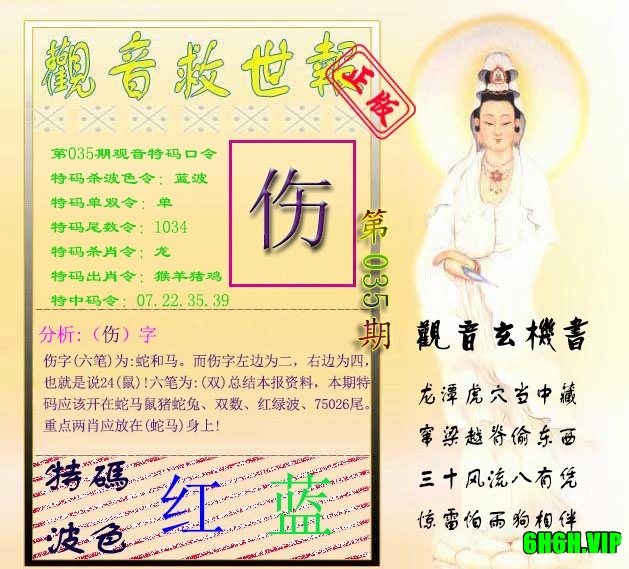 觀音救世報
正版
第035期观音特码口令
特码杀波色令：蓝波
特码单双令：单
特码尾数令：1034
特码杀肖令：龙
特码出肖令：猴羊猪鸡
特中码令：07.22.35.39
伤
第035期
分析:（伤）字
伤字(六笔)为:蛇和马。而伤字左边为二，右边为四，
也就是说24(鼠)!六笔为:(双)总结本报资料，本期特
码应该开在蛇马鼠猪蛇兔、双数、红绿波、75026尾。
重点两肖应放在(蛇马)身上!
特碼
波色
红 蓝
觀音玄機書
龙潭虎穴当中藏
窜梁越脊偷东西
三十风流八有凭
惊雷怕雨狗相伴
6H6H.VIP